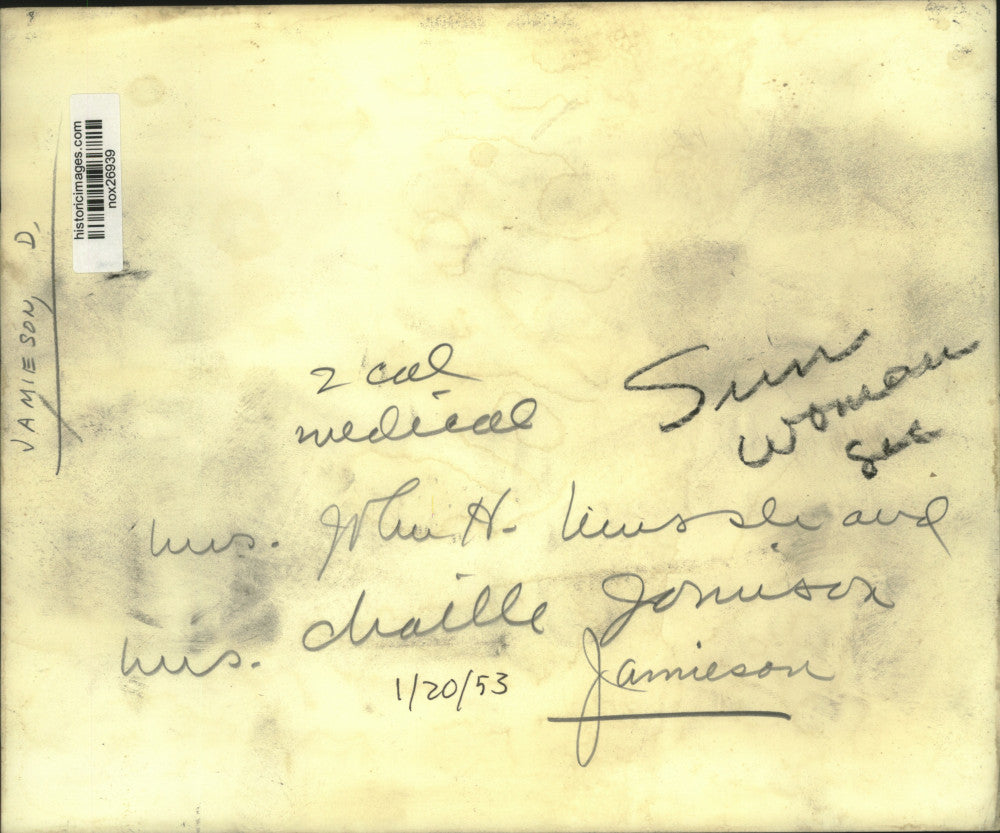 historicimages.com
nox26939
JAMIESON, D.
2 col
medical
Sun
Woman
sec
Mrs. John H. and
Mrs. Chaille Jomison
Jamieson
1/20/53